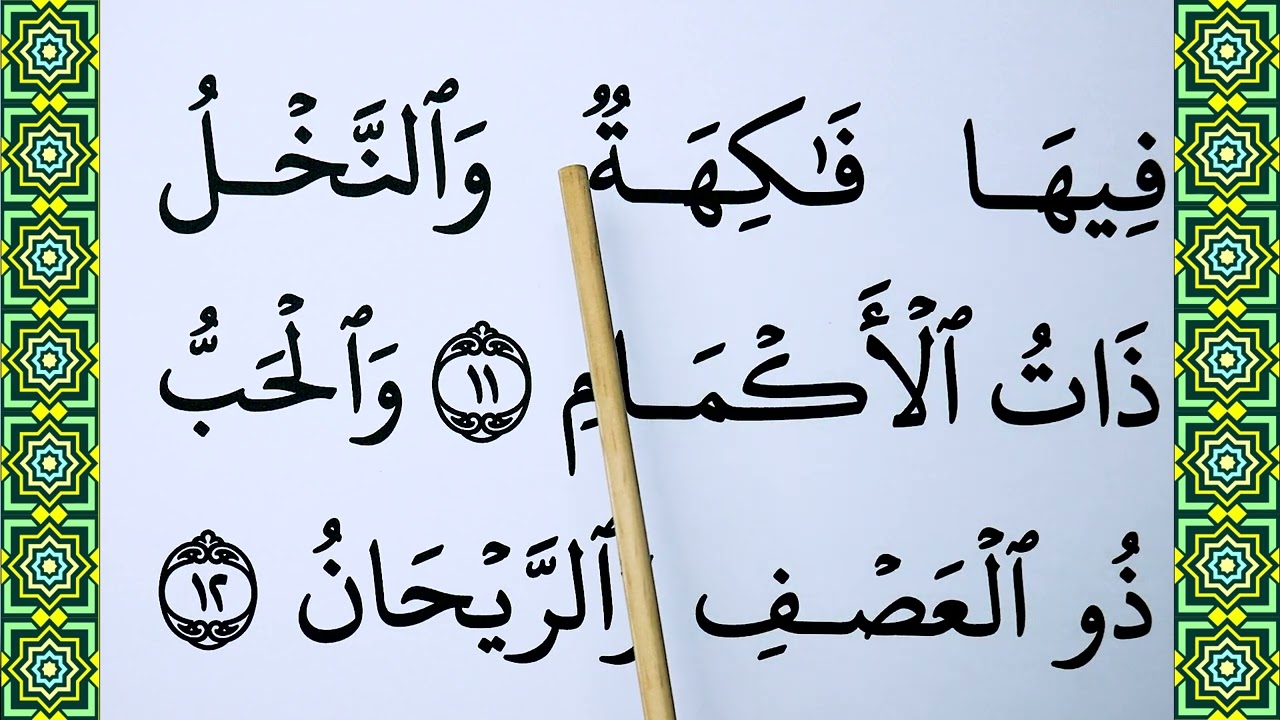 فِيهَا فَٰكِهَةٌ وَٱلنَّخْلُ
ذَاتُ ٱلْأَكْمَامِ ١١ وَٱلْحَبُّ
ذُو ٱلْعَصْفِ وَٱلرَّيْحَانُ ١٢